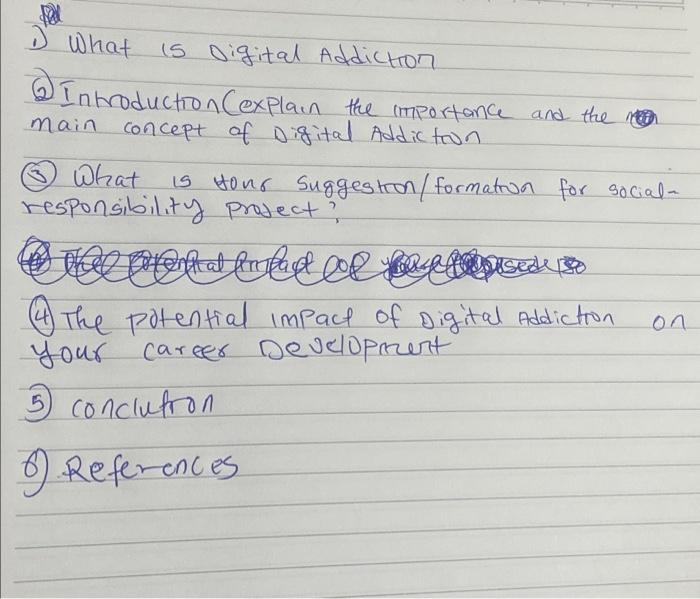 1) What is Digital Addiction
② Introduction (explain the importance and the
main concept of Digital Addiction
③ What is your suggestion/formation for social-
responsibility project?
④ The potential impact of Digital Addiction on
your career Development
5) conclution
6) References